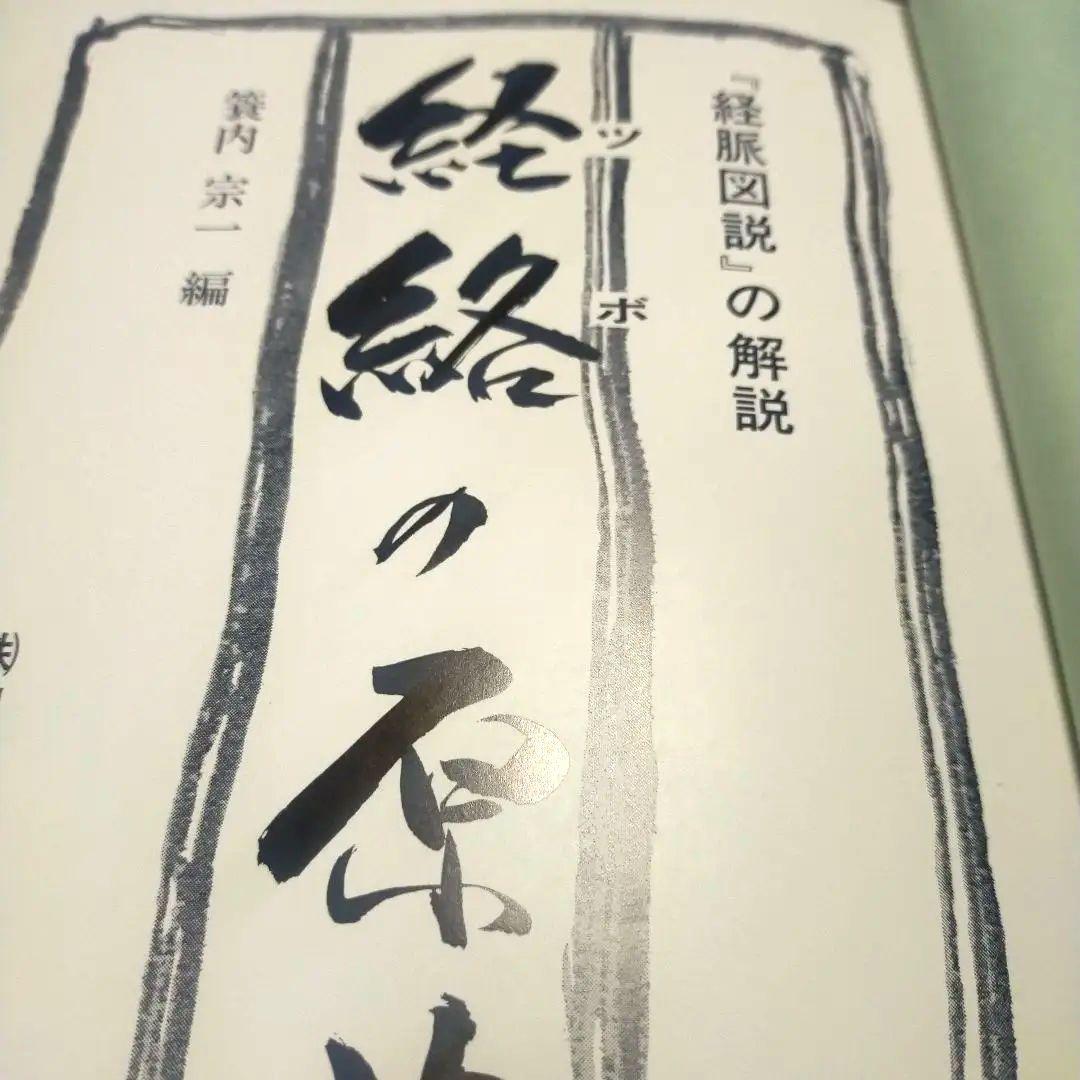 『経脈図説』の解説
ツボ
経絡の原
簑内 宗一 編